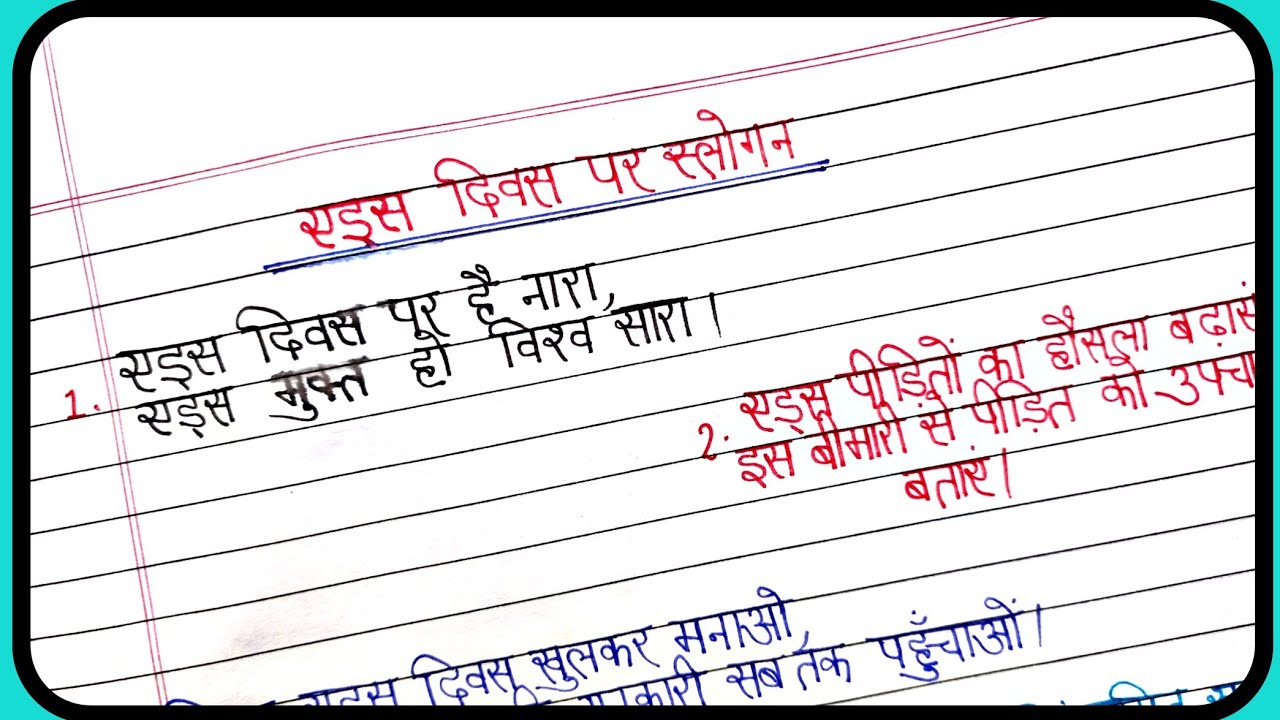 एड्स दिवस पर स्लोगन
1. एड्स दिवस पर है नारा,
एड्स मुक्त हो विश्व सारा।
2. एड्स पीड़ितों का हौसला बढ़ाएं
इस बीमारी से पीड़ित को उपचा
बताएं।
एड्स दिवस खुलकर मनाओ,
सब तक पहुँचाओं।